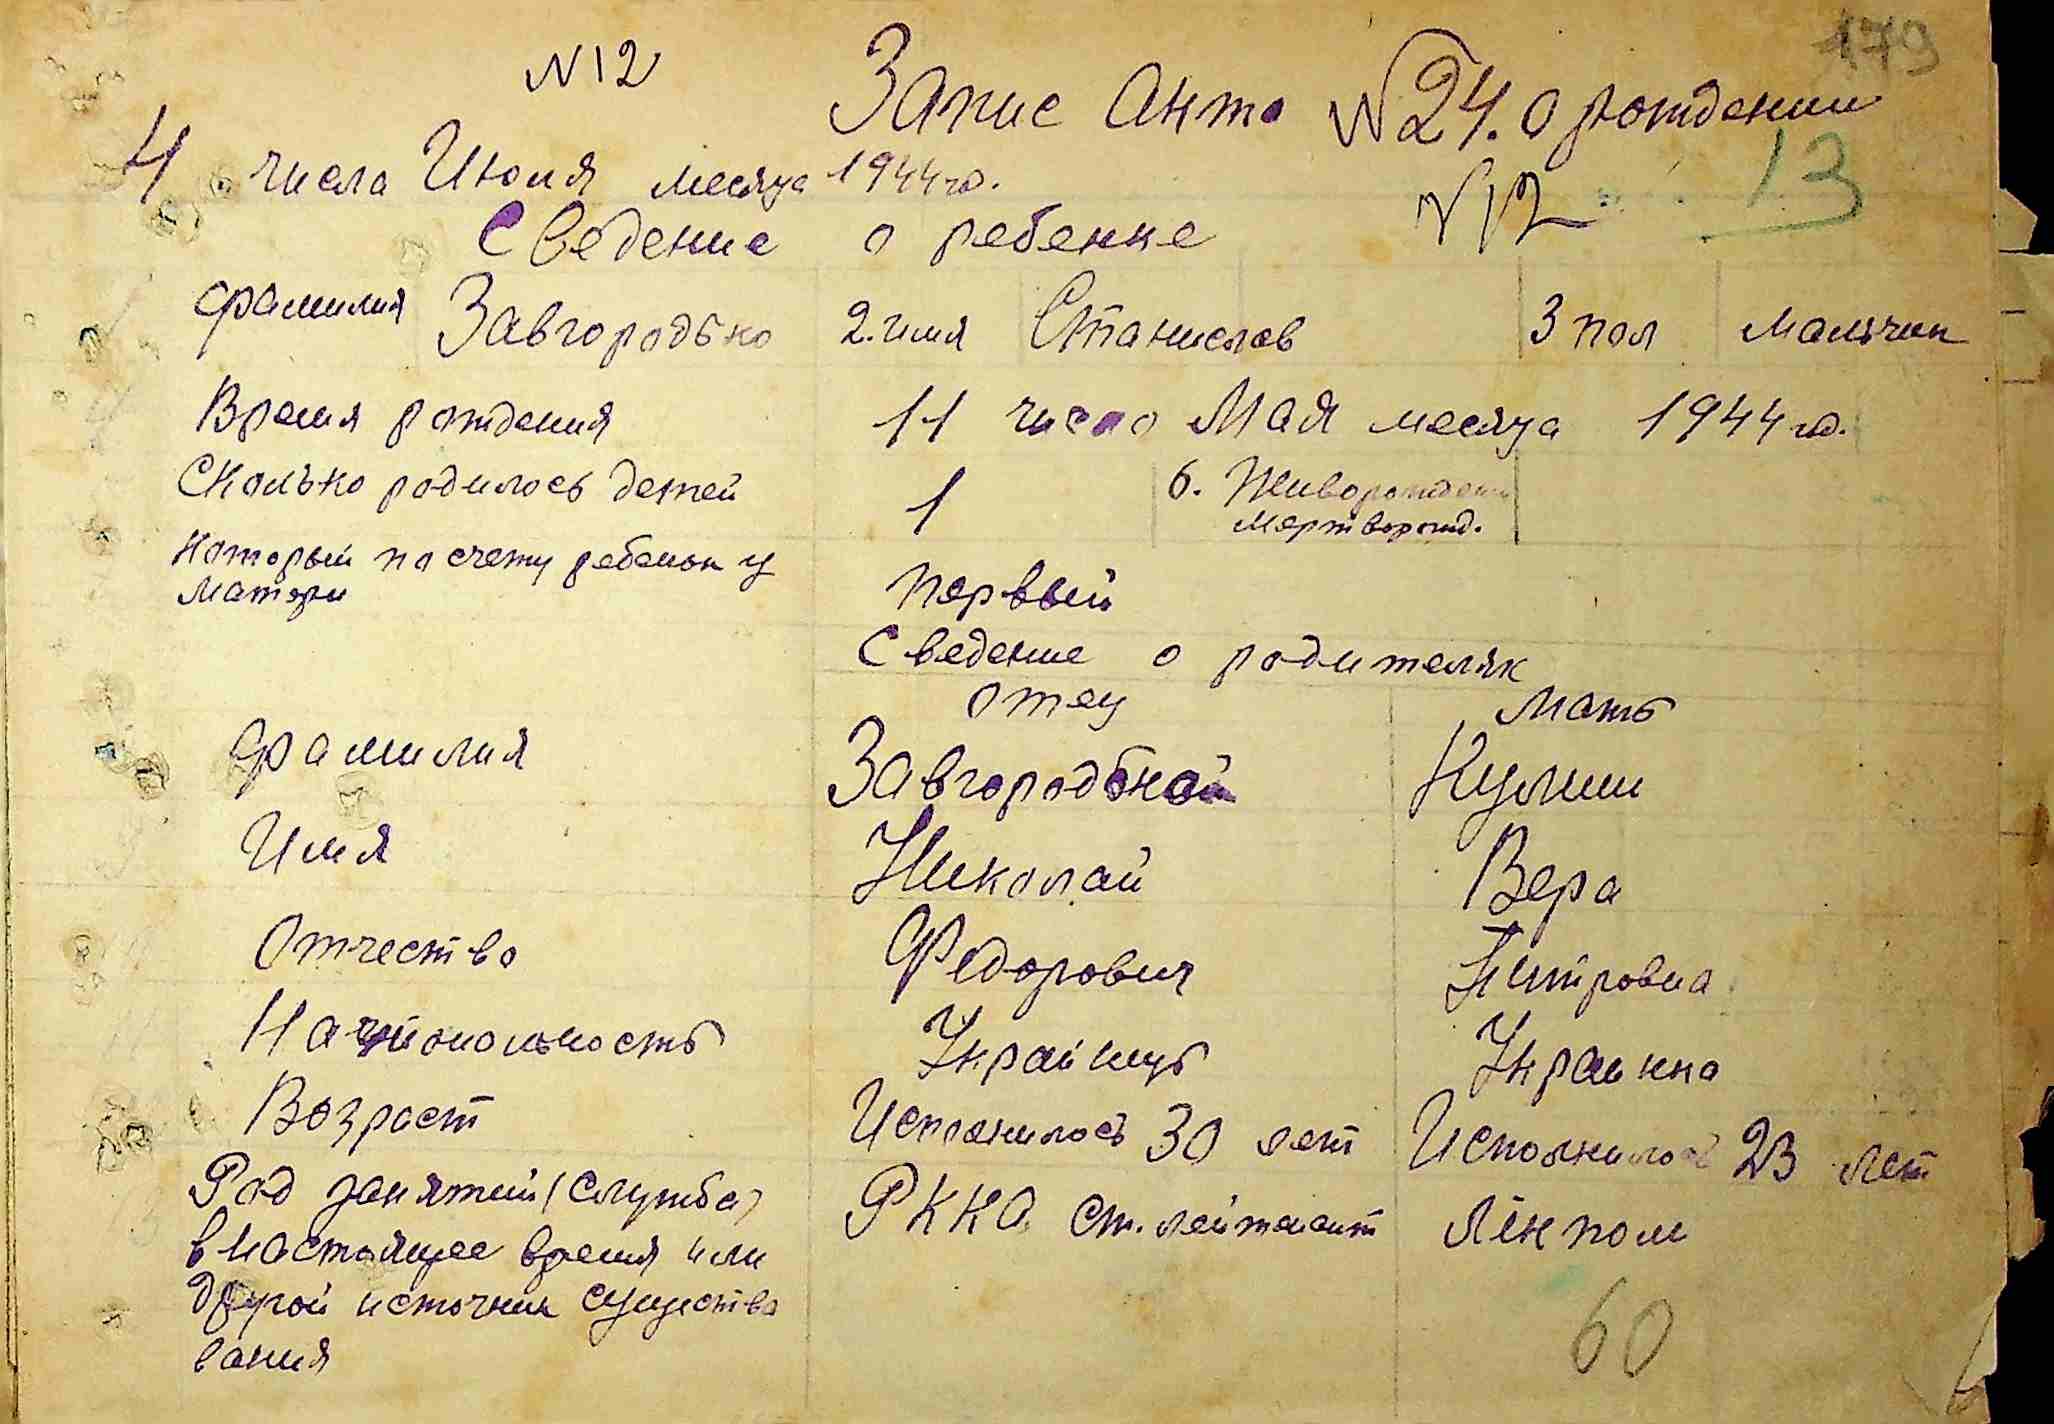 179
N12 Запис анто N24. о рождении
4 числа Июля месяца 1944 го.
N12 13
Сведение о ребенке
фамилия Завгородько 2. имя Станислав 3 пол мальчик
Время рождения 11 число Мая месяца 1944 го.
Сколько родилось детей 1 6. Живорожден
мертворожд.
Который по счету ребенок у
матери первый
Сведение о родителях
отец мать
Фамилия Завгородьной
Имя Николай Вера
Отчество Федорович
Национольность Украінць Украінка
Возраст Исполнилось 30 лет Исполнилось 23 лет
Род занятий (служба) РККА ст. лейтенант
в настоящее время или
другой источник существо
вания
60